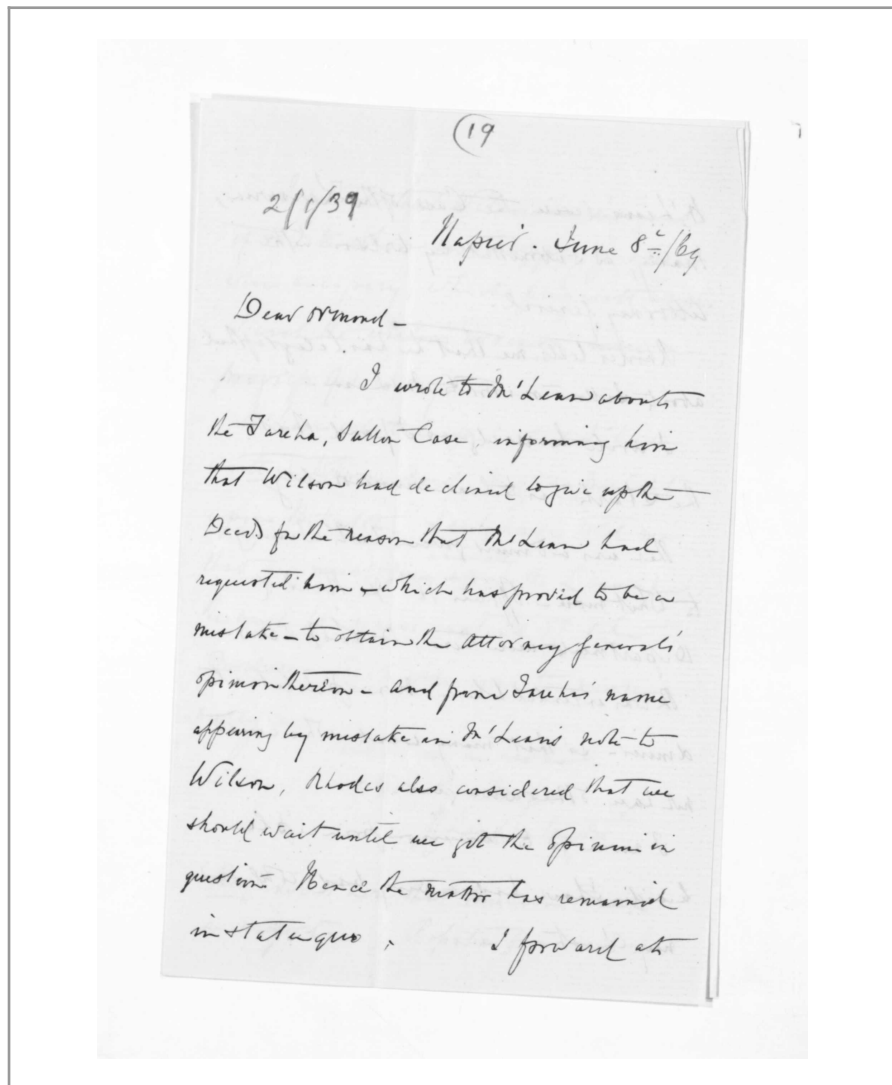 19
2/1/39
Napier. June 8th/69
Dear Ormond —
I wrote to McLean about
the Tareha, Sutton Case, informing him
that Wilson had declined to give up the
Deeds for the reason that McLean had
requested him — which has proved to be a
mistake — to obtain the Attorney General's
opinion thereon — and from Tareha's name
appearing by mistake in McLean's note to
Wilson, Rhodes also considered that we
should wait until we got the opinion in
question. Hence the matter has remained
in statu quo. I forward at